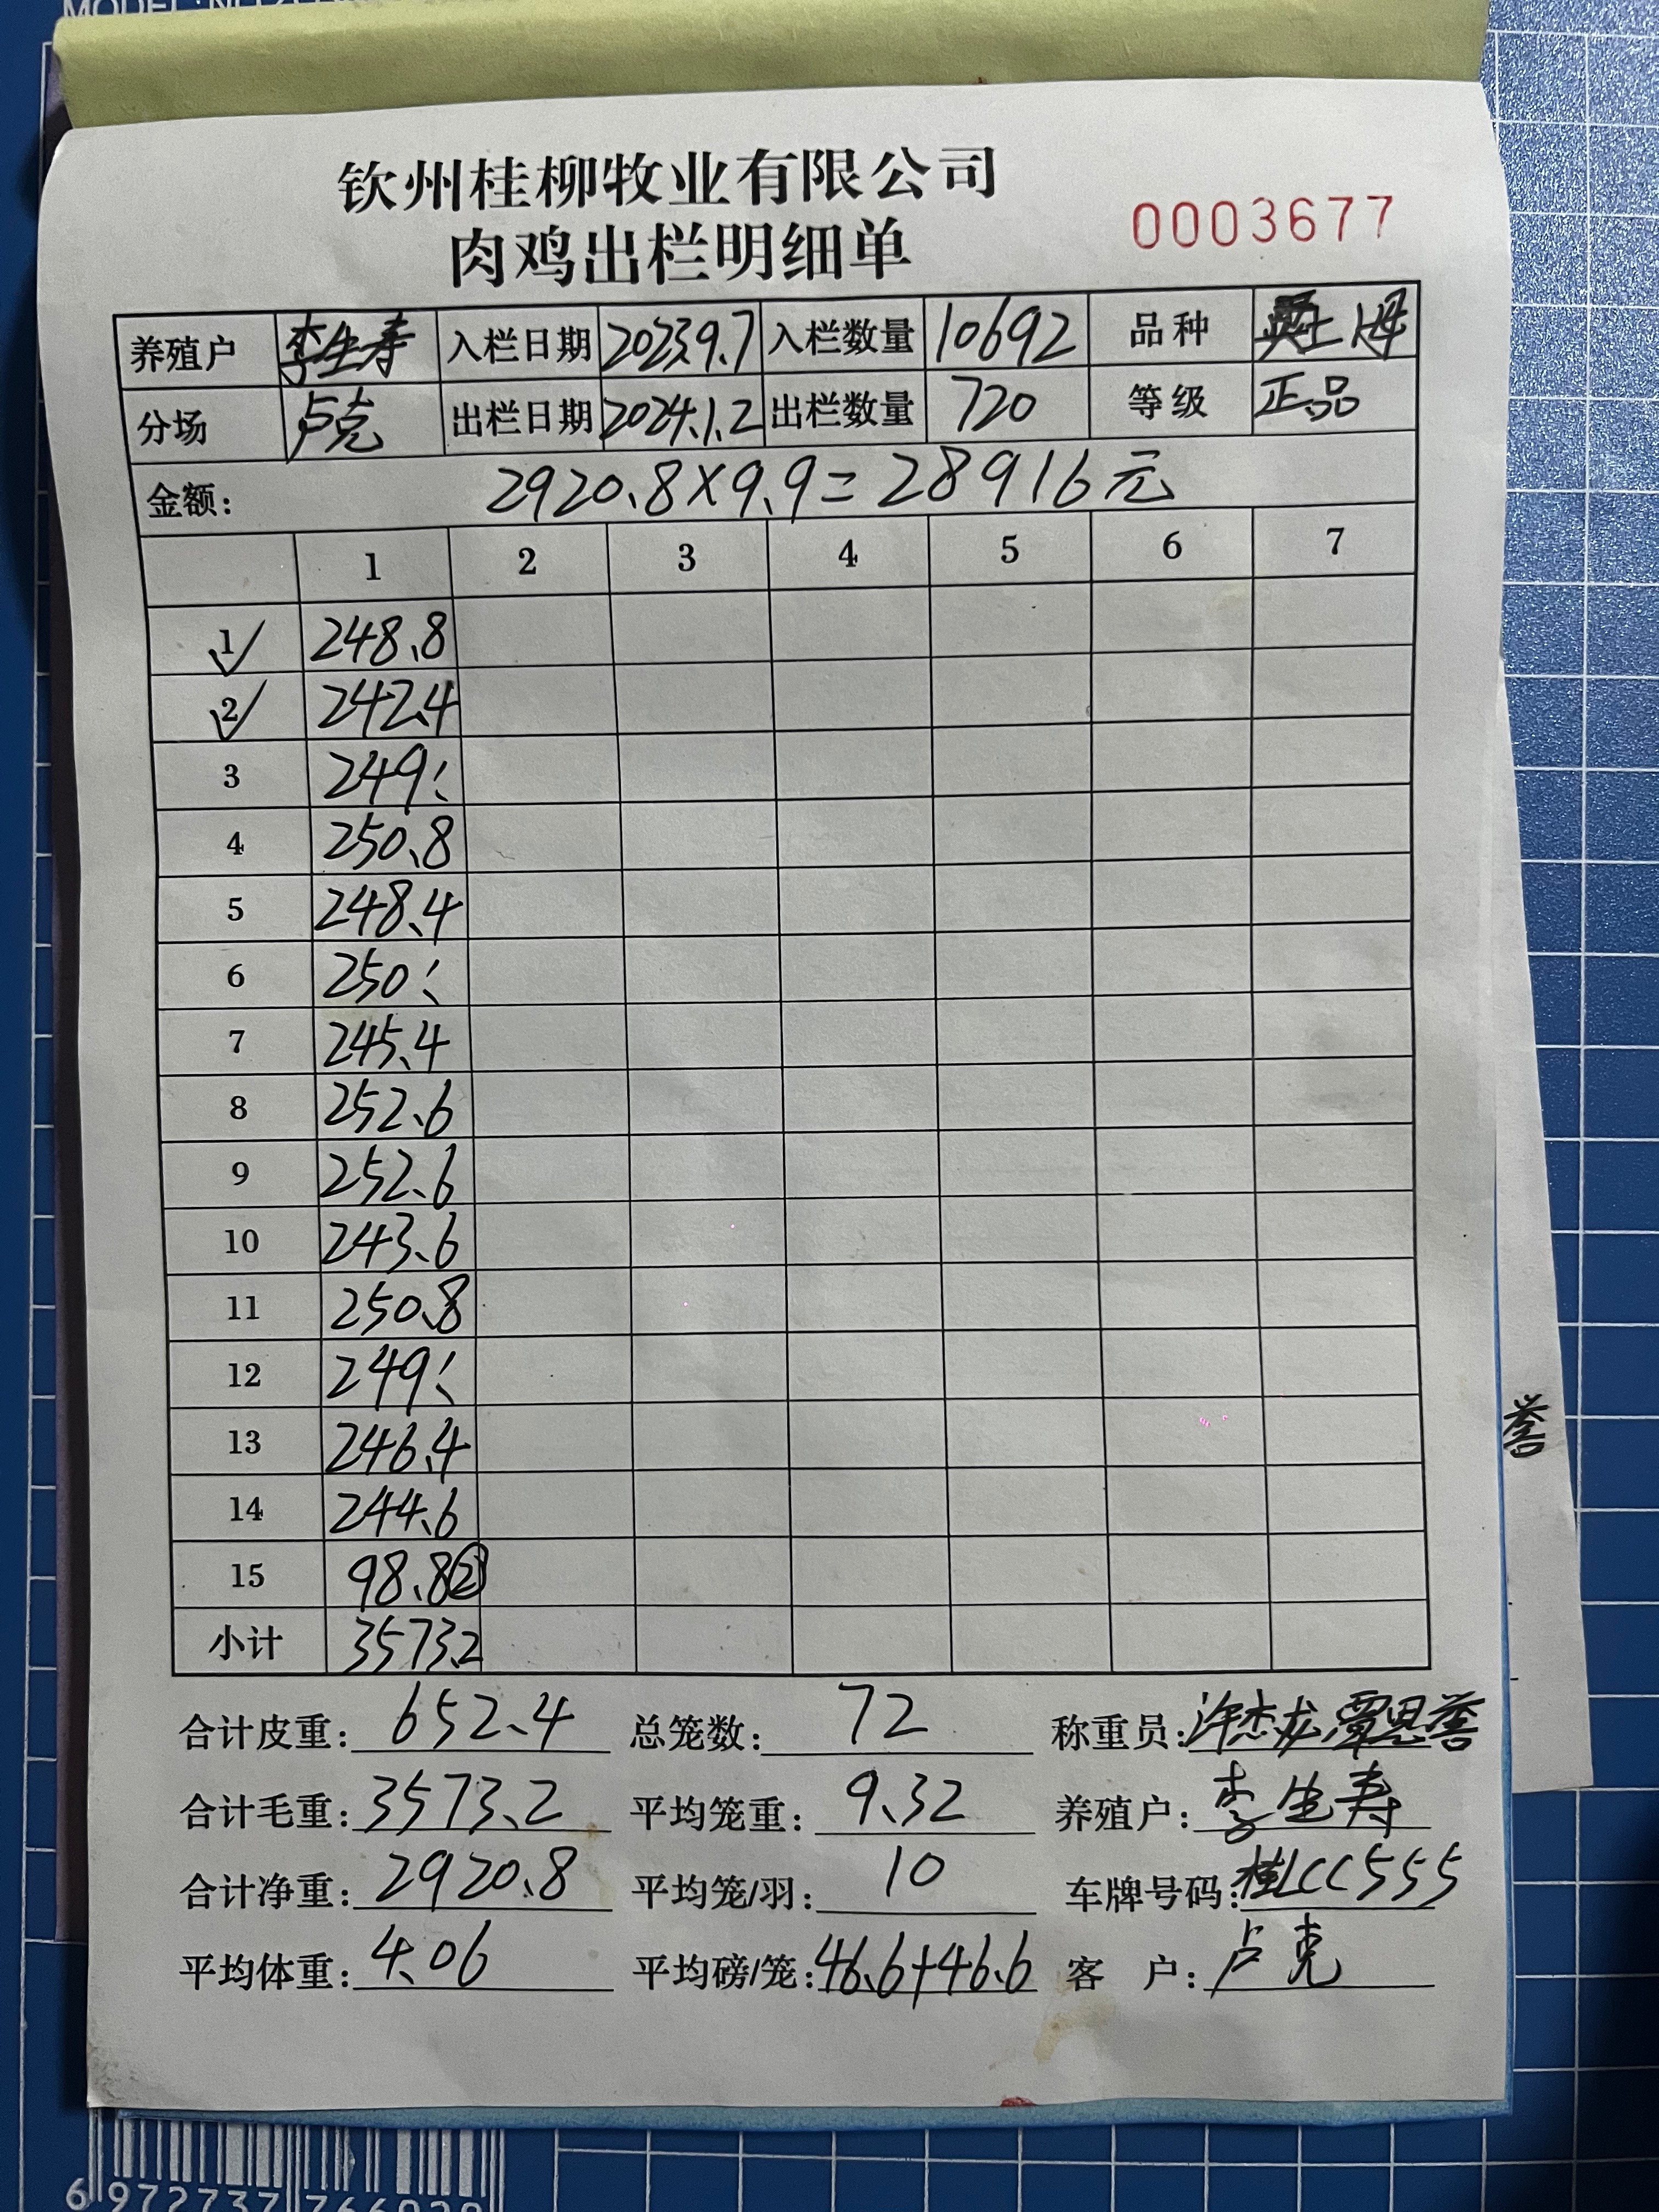 MODEL:
钦州桂柳牧业有限公司
肉鸡出栏明细单
0003677
养殖户 李生寿 入栏日期 2023.9.7 入栏数量 10692 品种
分场 卢克 出栏日期 2024.1.2 出栏数量 720 等级 正品
金额: 2920.8×9.9=28916元
1 2 3 4 5 6 7
1 248.8
2 242.4
3 249:
4 250.8
5 248.4
6 250:
7 245.4
8 252.6
9 252.6
10 243.6
11 250.8
12 249:
13 246.4
14 244.6
15 98.8②
小计 3573.2
合计皮重: 652.4 总笼数: 72 称重员: 许杰龙 覃恩誉
合计毛重: 3573.2 平均笼重: 9.32 养殖户: 李生寿
合计净重: 2920.8 平均笼/羽: 10 车牌号码: 桂LCC555
平均体重: 4.06 平均磅/笼: 46.6+46.6 客 户: 卢克
誉
6 972737